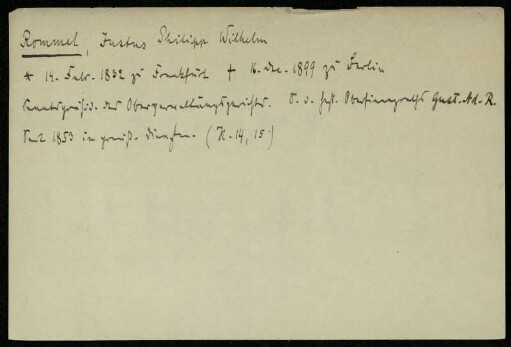 Rommel, Justus Philipp Wilhelm
* 14. Febr. 1832 zu Frankfurt † 16. Dez. 1899 zu Berlin
Senatspräsid. des Oberverwaltungsgerichts. S. v. Oberfinanzraths Gust. Ad. R.
Seit 1853 in preuß. Diensten. (H. 14, 15.)